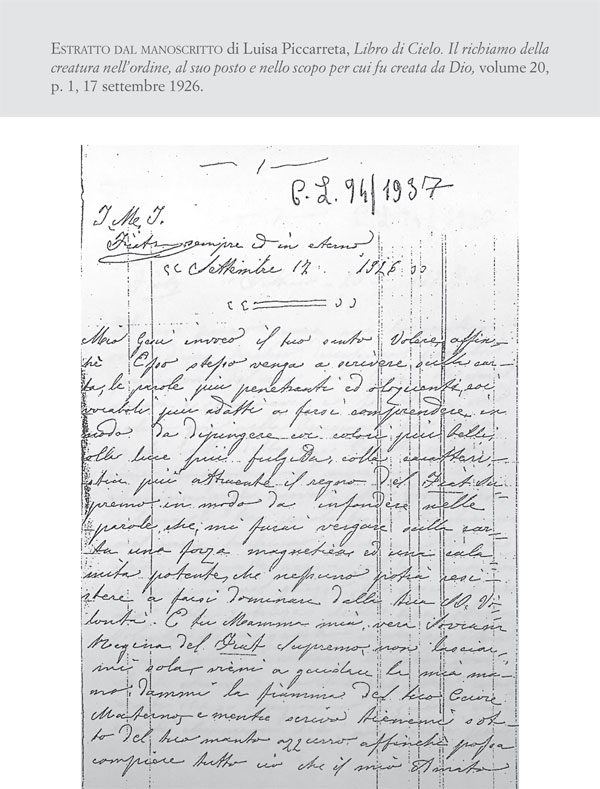 ESTRATTO DAL MANOSCRITTO di Luisa Piccarreta, Libro di Cielo. Il richiamo della
creatura nell'ordine, al suo posto e nello scopo per cui fu creata da Dio, volume 20,
p. 1, 17 settembre 1926.
1
C. L. 94/1937
J. M. J.
Fiat sempre ed in eterno
"Settembre 17 1926"
Mio Gesù invoco il tuo santo Volere, affin-
chè Esso stesso venga a scrivere sulla car-
ta, le parole più penetranti ed eloquenti, coi
vocaboli più adatti a farsi comprendere, in
modo da dipingere coi colori più belli,
colla luce più fulgida, colla caratteri-
stica più attraente il regno del Fiat Su-
premo in modo da infondere nelle
parole, che mi farai vergare sulla car-
ta una forza magnetica ed una cala-
mita potente, che nessuno potrà resi-
stere a farsi dominare dalla tua SS. Vo-
lontà. E tu Mamma mia, vera Sovrana
Regina del Fiat Supremo non lasciar-
mi sola, vieni a guidare la mia ma-
no, dammi la fiamma del tuo Cuore
Materno, e mentre scrivo tienemi sot-
to del tuo manto azzurro affinchè possa
compiere tutto ciò che il mio Amato